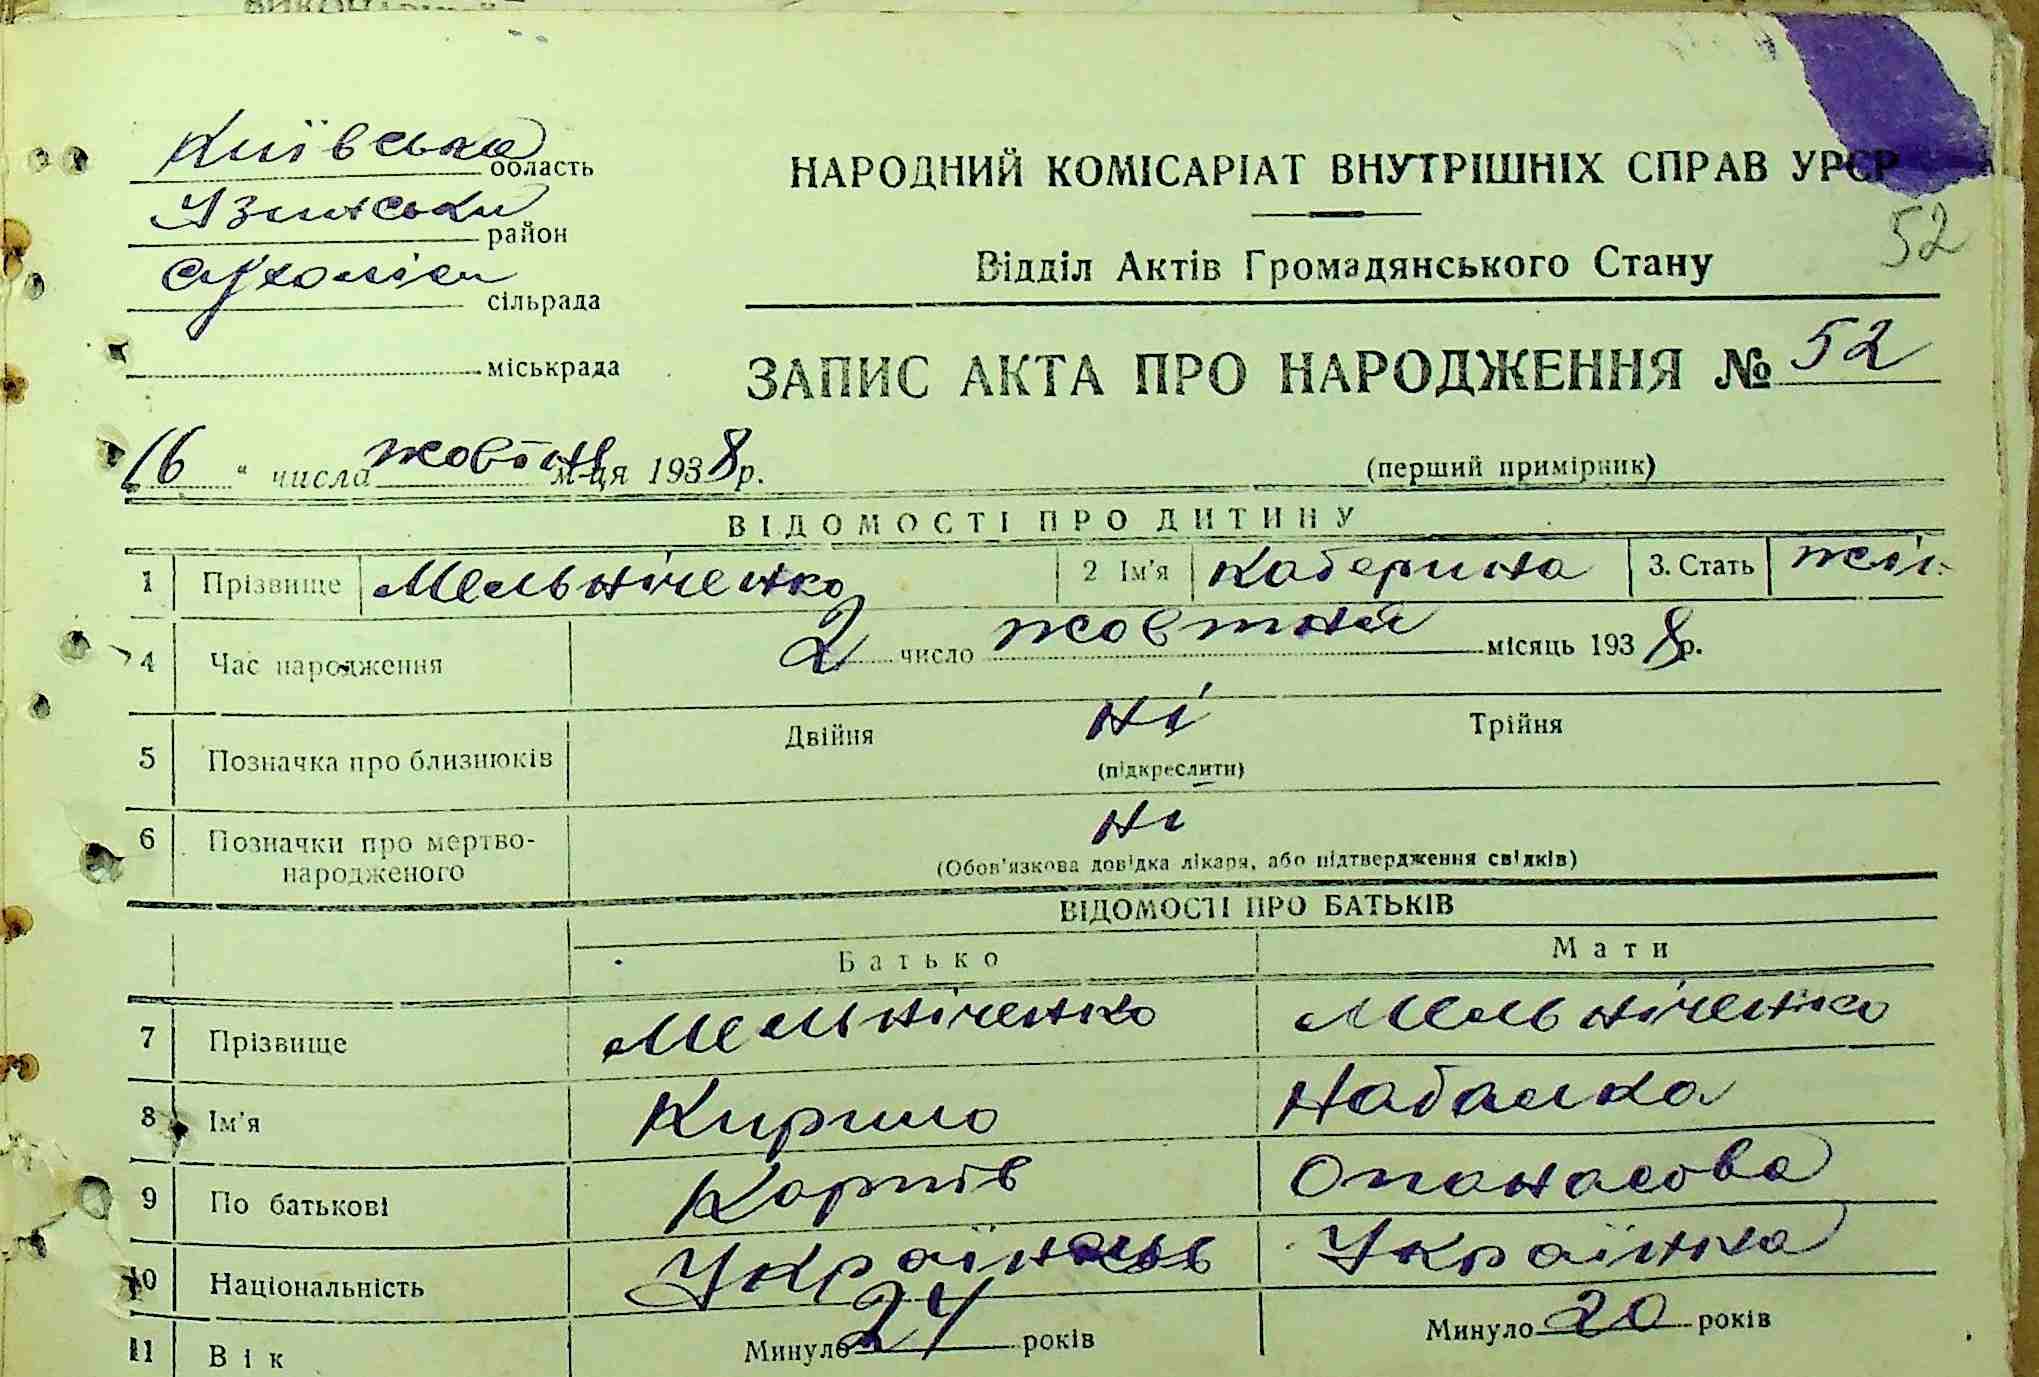 Київська область
Узинськи район
Сухоліси сільрада
міськрада
НАРОДНИЙ КОМІСАРІАТ ВНУТРІШНІХ СПРАВ УРСР
52
Відділ Актів Громадянського Стану
ЗАПИС АКТА ПРО НАРОДЖЕННЯ № 52
16 " числа жовтня м-ця 1938 р.
(перший примірник)
ВІДОМОСТІ ПРО ДИТИНУ
1 Прізвище Мельніченко 2 Ім'я Катерина 3. Стать жін.
4 Час народження 2 число жовтня місяць 1938 р.
5 Позначка про близнюків Двійня ні Трійня
(підкреслити)
6 Позначки про мертво-
народженого ні
(Обов'язкова довідка лікаря, або підтвердження свідків)
ВІДОМОСТІ ПРО БАТЬКІВ
Батько Мати
7 Прізвище Мельніченко Мельніченко
8 Ім'я Кирило Наталка
9 По батькові Карпів Опанасова
10 Національність Українець Українка
11 Вік Минуло 24 років Минуло 20 років